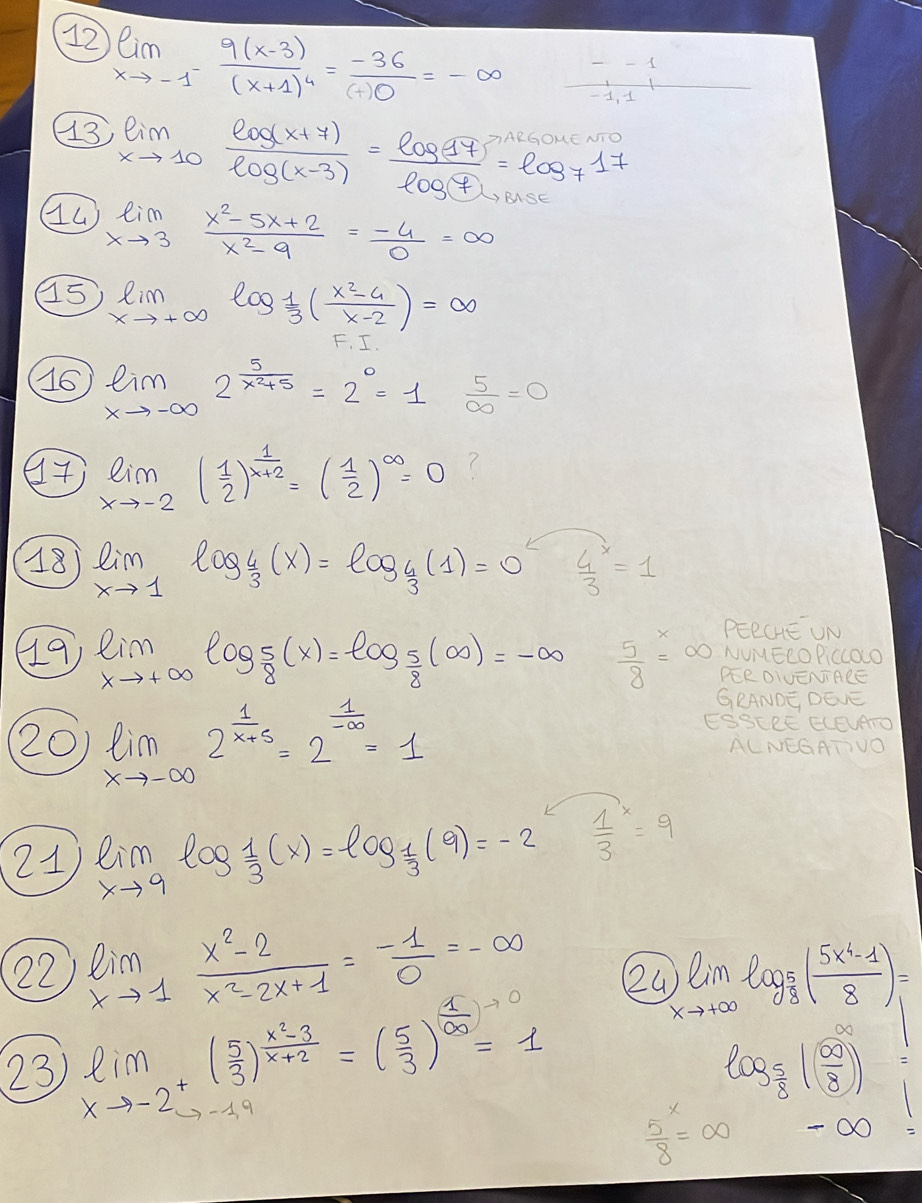 12) lim x→-1⁻ 9(x-3)/(x+1)⁴ = -36/(+)0 = -∞ - -1 -1,1
13) lim x→10 log(x+7)/log(x-3) = log 17/log 7 = log₇ 17 → ARGOMENTO → BASE
14) lim x→3 (x²-5x+2)/(x²-9) = -4/0 = ∞
15) lim x→+∞ log 1/3 ((x²-4)/(x-2)) = ∞
F.I.
16) lim x→-∞ 2^(5/(x²+5)) = 2⁰ = 1 5/∞ = 0
17) lim x→-2 (1/2)^(1/(x+2)) = (1/2)^∞ = 0 ?
18) lim x→1 log 4/3 (x) = log 4/3 (1) = 0 4/3^x = 1
19) lim x→+∞ log 5/8 (x) = log 5/8 (∞) = -∞ 5/8^x = ∞
PERCHÉ UN
NUMERO PICCOLO
PER DIVENTARE
GRANDE, DEVE
ESSERE ELEVATO
AL NEGATIVO
20) lim x→-∞ 2^(1/(x+5)) = 2^(1/-∞) = 1
21) lim x→9 log 1/3 (x) = log 1/3 (9) = -2 1/3^x = 9
22) lim x→1 (x²-2)/(x²-2x+1) = -1/0 = -∞
23) lim x→-2⁺ (5/3)^((x²-3)/(x+2)) = (5/3)^(1/∞) → 0 = 1
→ -1,9
24) lim x→+∞ log 5/8 ((5x⁴-1)/8) =
log 5/8 (∞/8) ∞ =
5/8^x = ∞ -∞ =